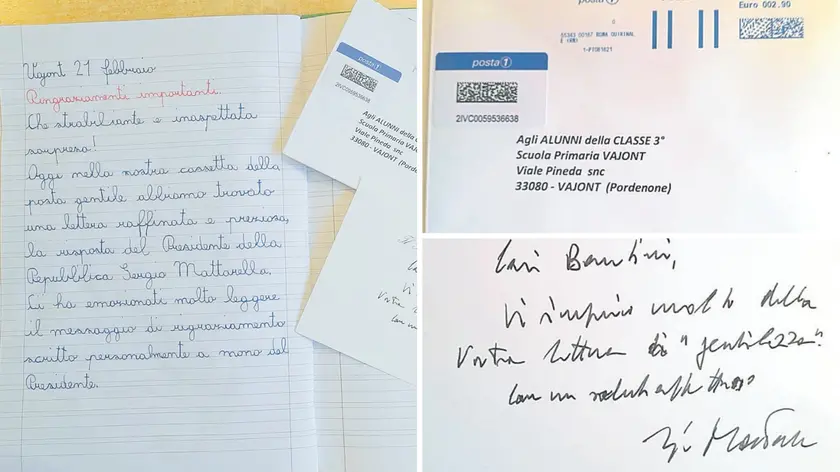 Vajont 21 febbraio
Ringraziamenti importanti.
Che strabiliante e inaspettata
sorpresa!
Oggi nella nostra cassetta della
posta gentile abbiamo trovato
una lettera raffinata e preziosa,
la risposta del Presidente della
Repubblica Sergio Mattarella.
Ci ha emozionati molto leggere
il messaggio di rigraziamento
scritto personalmente a mano del
Presidente.
posta1
2IVC0059536638
Agli ALUNNI della
Scuola Primaria
Viale Pineda snc
33080 - VAJONT
posta1
Euro 002.90
posta1
2IVC0059536638
Agli ALUNNI della CLASSE 3°
Scuola Primaria VAJONT
Viale Pineda snc
33080 - VAJONT (Pordenone)
Cari Bambini,
Vi ringrazio molto della
Vostra lettera di "gentilezza".
Con un saluto affettuoso